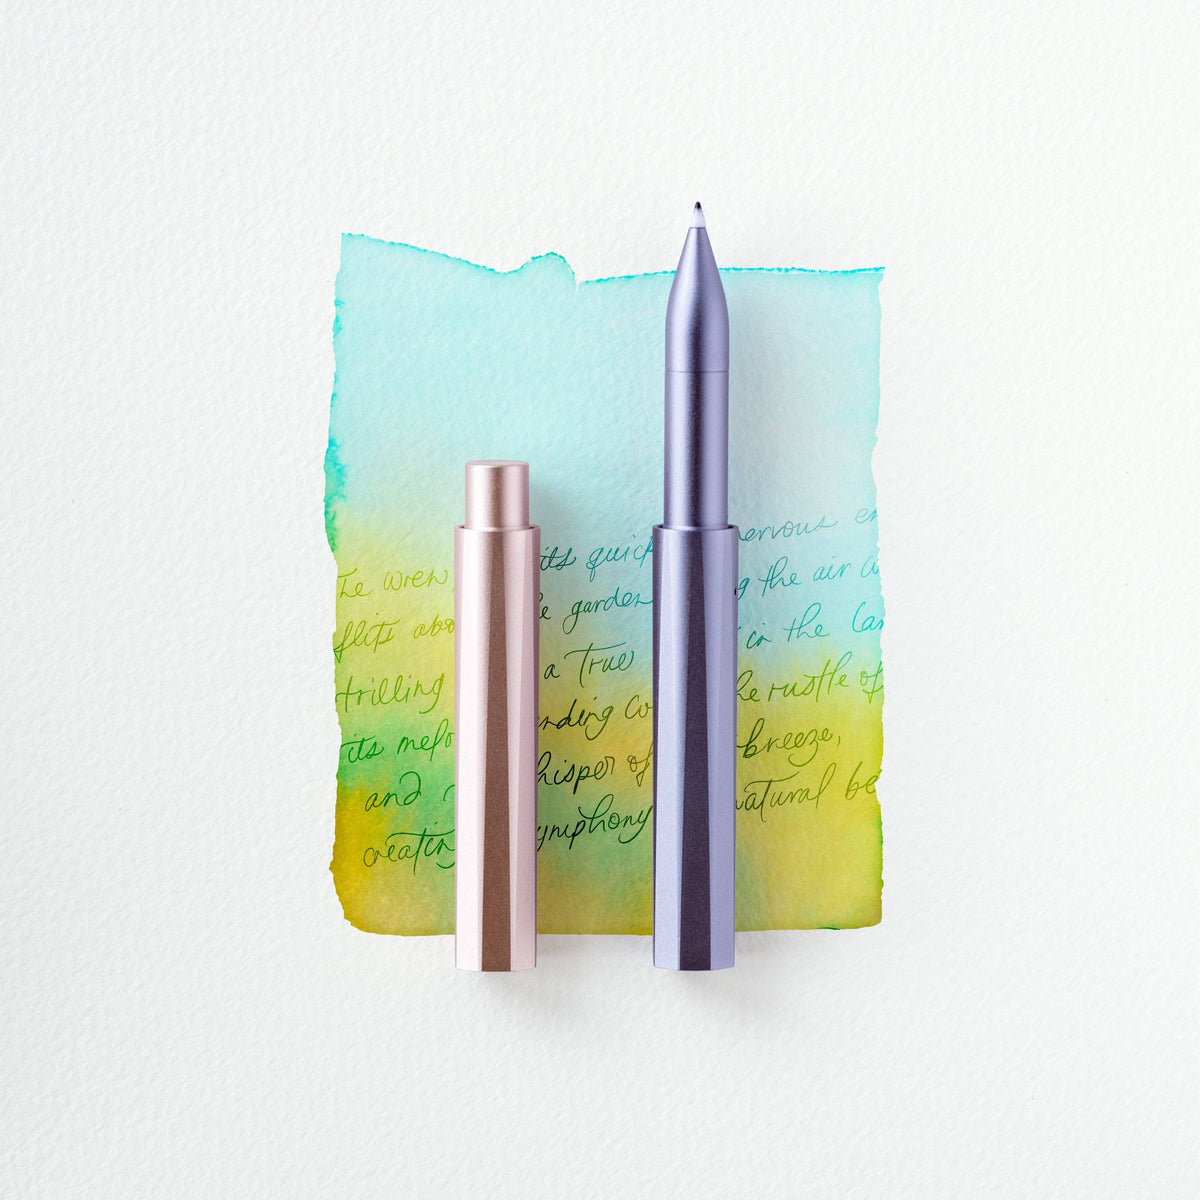 The wren, its quick nervous en
flits abo e garden g the air
trilling a true in the lan
its melo nding co he rustle of
and hisper of breeze,
creatin ymphony natural be